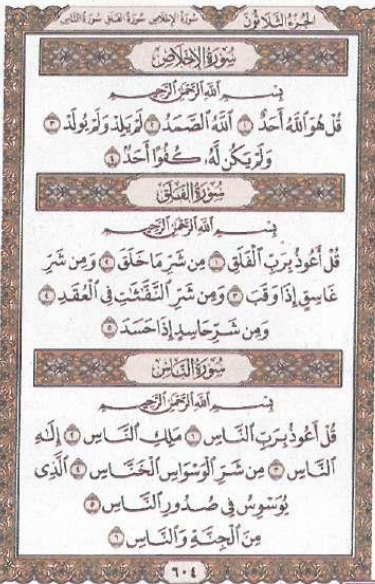 الجزء الثلاثون سورة الإخلاص سورة الفلق سورة الناس
سُورَةُ الإِخْلَاصِ
بِسْمِ اللَّهِ الرَّحْمَٰنِ الرَّحِيمِ
قُلْ هُوَ اللَّهُ أَحَدٌ ١ اللَّهُ الصَّمَدُ ٢ لَمْ يَلِدْ وَلَمْ يُولَدْ ٣
وَلَمْ يَكُن لَّهُۥ كُفُوًا أَحَدٌ ٤
سُورَةُ الفَلَقِ
بِسْمِ اللَّهِ الرَّحْمَٰنِ الرَّحِيمِ
قُلْ أَعُوذُ بِرَبِّ الْفَلَقِ ١ مِن شَرِّ مَا خَلَقَ ٢ وَمِن شَرِّ
غَاسِقٍ إِذَا وَقَبَ ٣ وَمِن شَرِّ النَّفَّٰثَٰتِ فِي الْعُقَدِ ٤
وَمِن شَرِّ حَاسِدٍ إِذَا حَسَدَ ٥
سُورَةُ النَّاسِ
بِسْمِ اللَّهِ الرَّحْمَٰنِ الرَّحِيمِ
قُلْ أَعُوذُ بِرَبِّ النَّاسِ ١ مَلِكِ النَّاسِ ٢ إِلَٰهِ
النَّاسِ ٣ مِن شَرِّ الْوَسْوَاسِ الْخَنَّاسِ ٤ الَّذِي
يُوَسْوِسُ فِي صُدُورِ النَّاسِ ٥
مِنَ الْجِنَّةِ وَالنَّاسِ ٦
٦٠٤